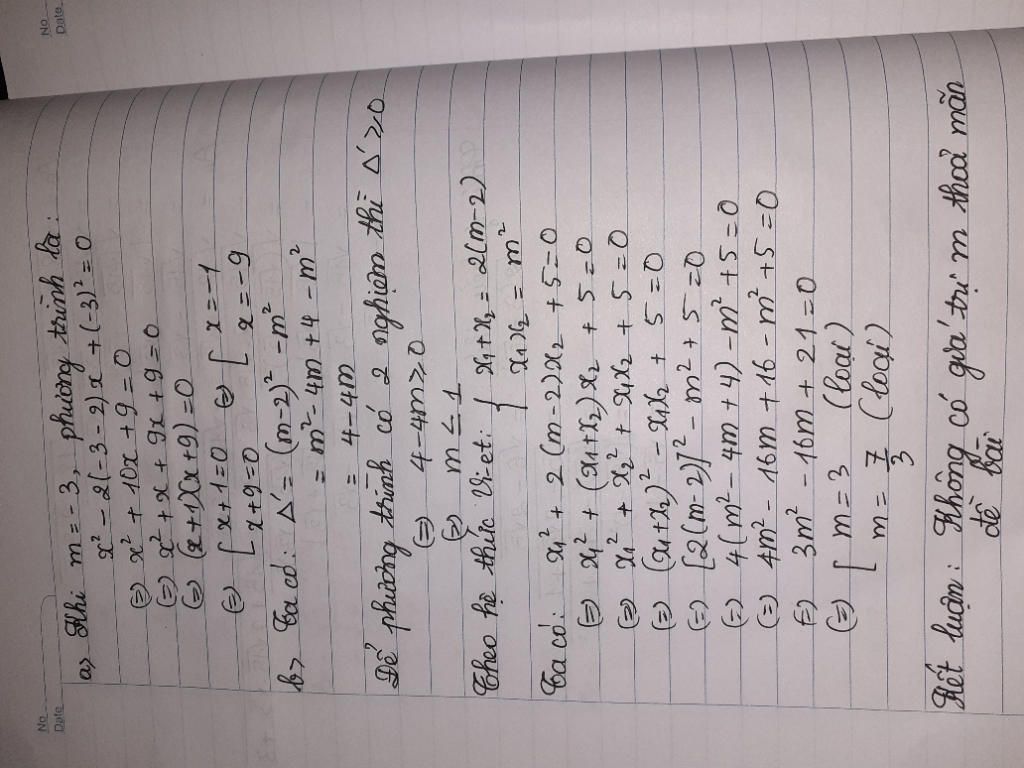 No
Date
No
Date
a, Khi m = -3, phương trình là:
x² - 2(-3-2)x + (-3)² = 0
(=) x² + 10x + 9 = 0
(=) x² + x + 9x + 9 = 0
(=) (x+1)(x+9) = 0
(=) [ x+1=0 (=) [ x = -1
x+9=0 x = -9
b, Ta có: Δ' = (m-2)² - m²
= m² - 4m + 4 - m²
= 4 - 4m
Để phương trình có 2 nghiệm thì Δ' ≥ 0
(=) 4 - 4m ≥ 0
(=) m ≤ 1
Theo hệ thức Vi-et: { x₁ + x₂ = 2(m-2)
x₁x₂ = m²
Ta có: x₁² + 2(m-2)x₂ + 5 = 0
(=) x₁² + (x₁+x₂)x₂ + 5 = 0
(=) x₁² + x₂² + x₁x₂ + 5 = 0
(=) (x₁+x₂)² - x₁x₂ + 5 = 0
(=) [2(m-2)]² - m² + 5 = 0
(=) 4(m² - 4m + 4) - m² + 5 = 0
(=) 4m² - 16m + 16 - m² + 5 = 0
(=) 3m² - 16m + 21 = 0
(=) [ m = 3 (loại)
m = 7/3 (loại)
Kết luận: Không có giá trị m thoả mãn
đề bài